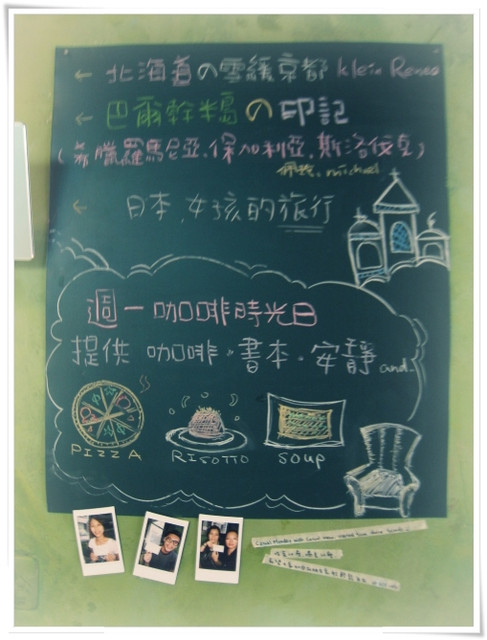 ← 北海道の雪緩京都 klein Renee
← 巴爾幹半島の印記
(希臘羅馬尼亞、保加利亞，斯洛伐克)
michael
← 日本，女孩的旅行
週一咖啡時光日
提供 咖啡・書本・安靜 and.
PIZZA RISOTTO SOUP